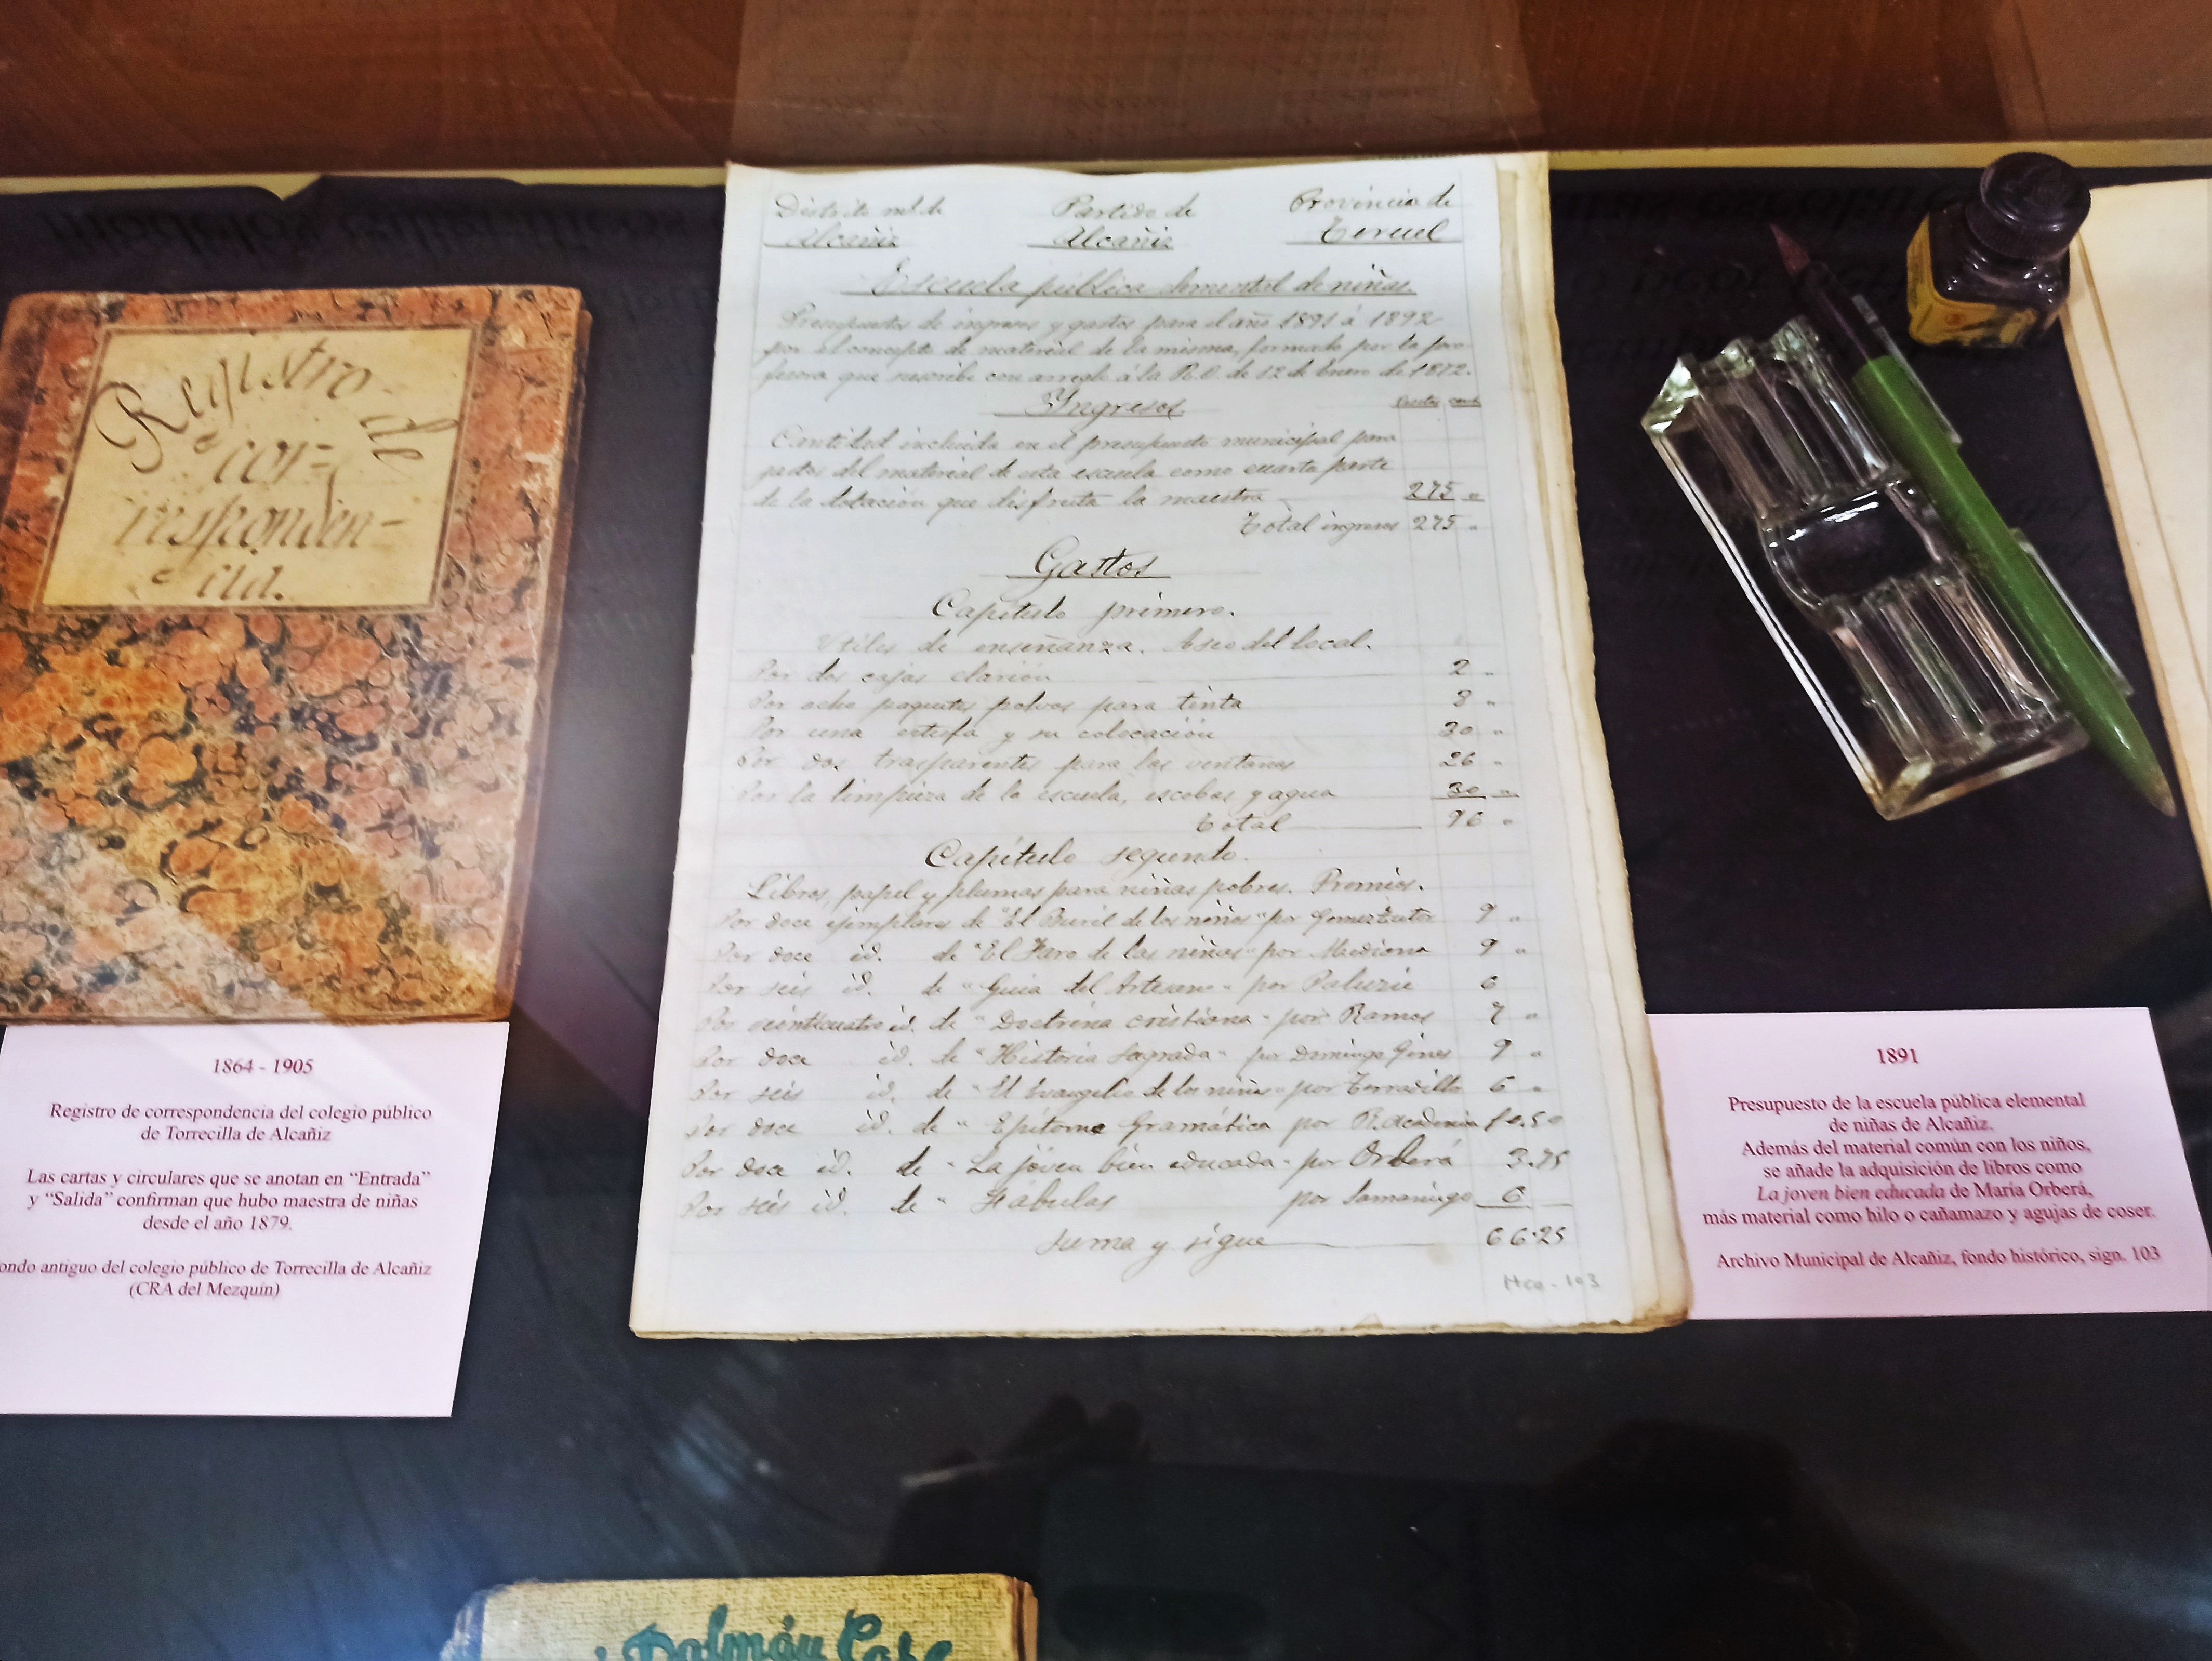 Registro de
cor=
responden=
cia.
1864 - 1905
Registro de correspondencia del colegio público
de Torrecilla de Alcañiz
Las cartas y circulares que se anotan en “Entrada”
y “Salida” confirman que hubo maestra de niñas
desde el año 1879.
ondo antiguo del colegio público de Torrecilla de Alcañiz
(CRA del Mezquín)
Distrito ml. de Partido de Provincia de
Alcañiz Alcañiz Teruel
Escuela pública elemental de niñas.
Presupuestos de ingresos y gastos para el año 1891 á 1892
por el concepto de material de la misma, formado por la pro-
fesora que suscribe con arreglo á la R.O. de 12 de Enero de 1872.
Ingresos
Cantidad incluida en el presupuesto municipal para
gastos del material de esta escuela como cuarta parte
de la dotación que disfruta la maestra 275 "
Total ingresos 275 "
Gastos
Capítulo primero.
Utiles de enseñanza. Aseo del local.
Por dos cajas clarión 2 "
Por ocho paquetes polvos para tinta 8 "
Por una estufa y su colocación 30 "
Por dos trasparentes para las ventanas 26 "
Por la limpieza de la escuela, escobas y agua 30 "
Total 96 "
Capítulo segundo.
Libros, papel y plumas para niñas pobres. Premios.
Por doce ejemplares de "El Buril de los niños" por 9 "
Por doce id. de "El Faro de las niñas" por Mediona 9 "
Por seis id. de "Guia del Artesano" por Paluzie 6
Por veinticuatro id. de "Doctrina cristiana" por Ramos 7 "
Por doce id. de "Historia Sagrada" por Domingo Gines 9 "
Por seis id. de "El Evangelio de los niños" por Terradillos 6 "
Por doce id. de "Epítome Gramática por R. Academia 10.50
Por doce id. de "La jóven bien educada" por Orberá 3.75
Por seis id. de "Fábulas por Samaniego 6
Suma y sigue 66.25
Hco - 103
1891
Presupuesto de la escuela pública elemental
de niñas de Alcañiz.
Además del material común con los niños,
se añade la adquisición de libros como
La joven bien educada de María Orberá,
más material como hilo o cañamazo y agujas de coser.
Archivo Municipal de Alcañiz, fondo histórico, sign. 103
Dalmáu Carl